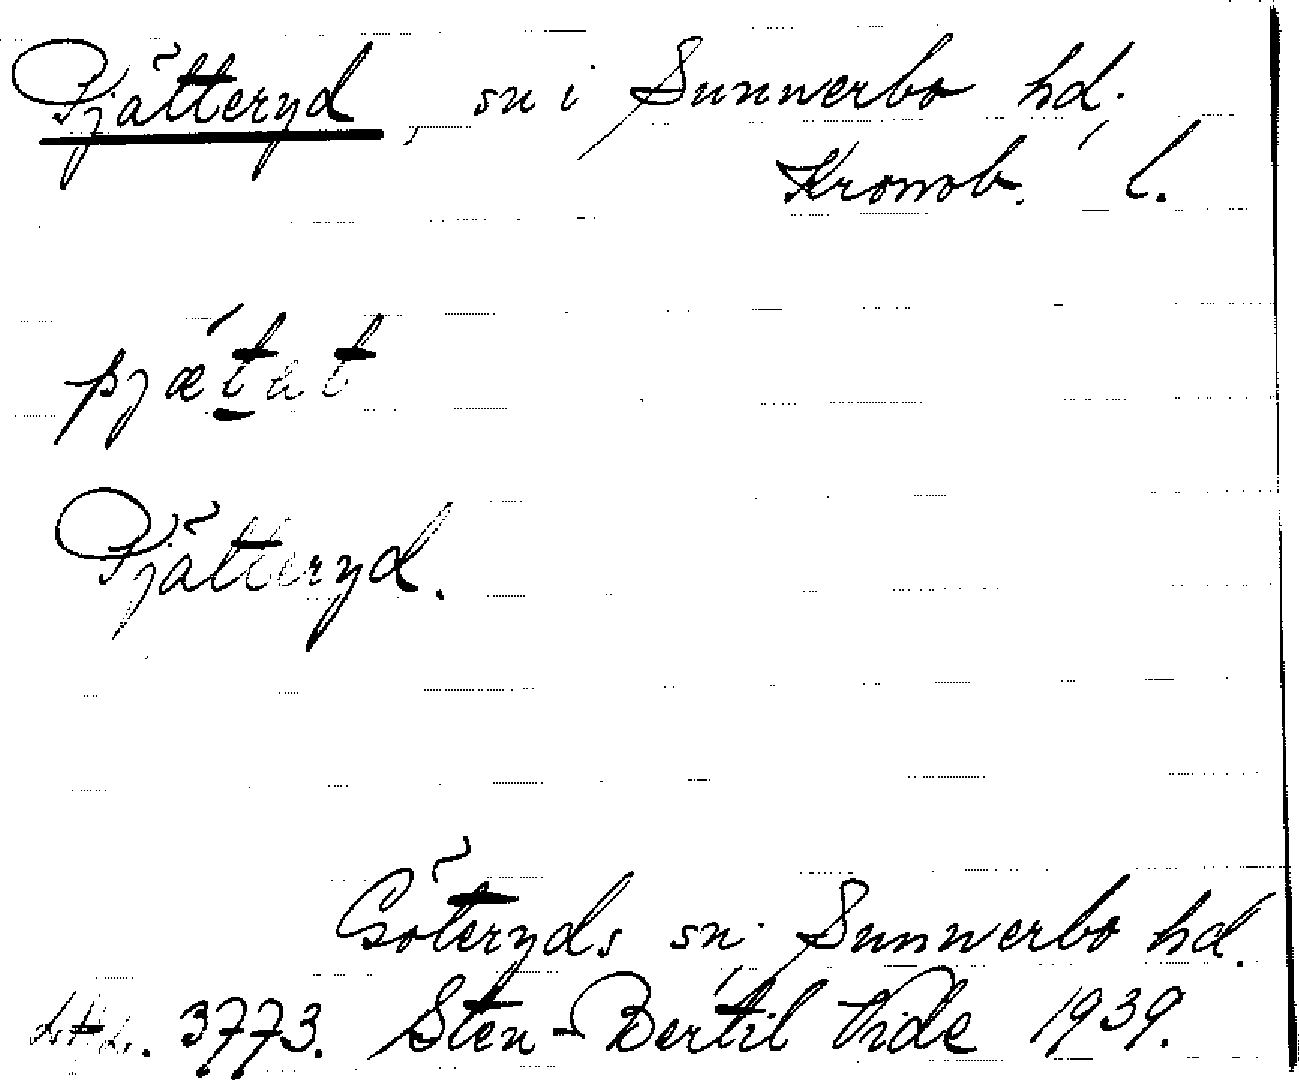 Pjätteryd, sn i Sunnerbo hd.
Kronob. l.
pjǽtat
Pjätteryd.
Göteryds sn; Sunnerbo hd.
3773. Sten-Bertil Vide 1939.